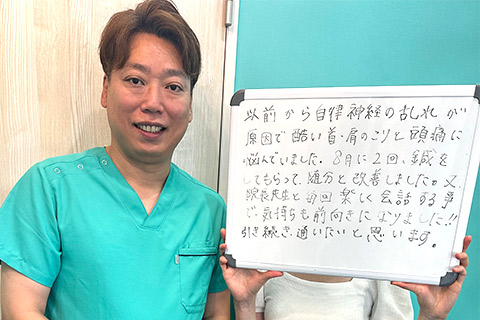 以前から自律神経の乱れが
原因で酷い首・肩のこりと頭痛に
悩んでいました。8月に2回、鍼を
してもらって、随分と改善しました。又、
院長先生と毎回楽しく会話する事
で、気持ちも前向きになりました!!
引き続き、通いたいと思います。